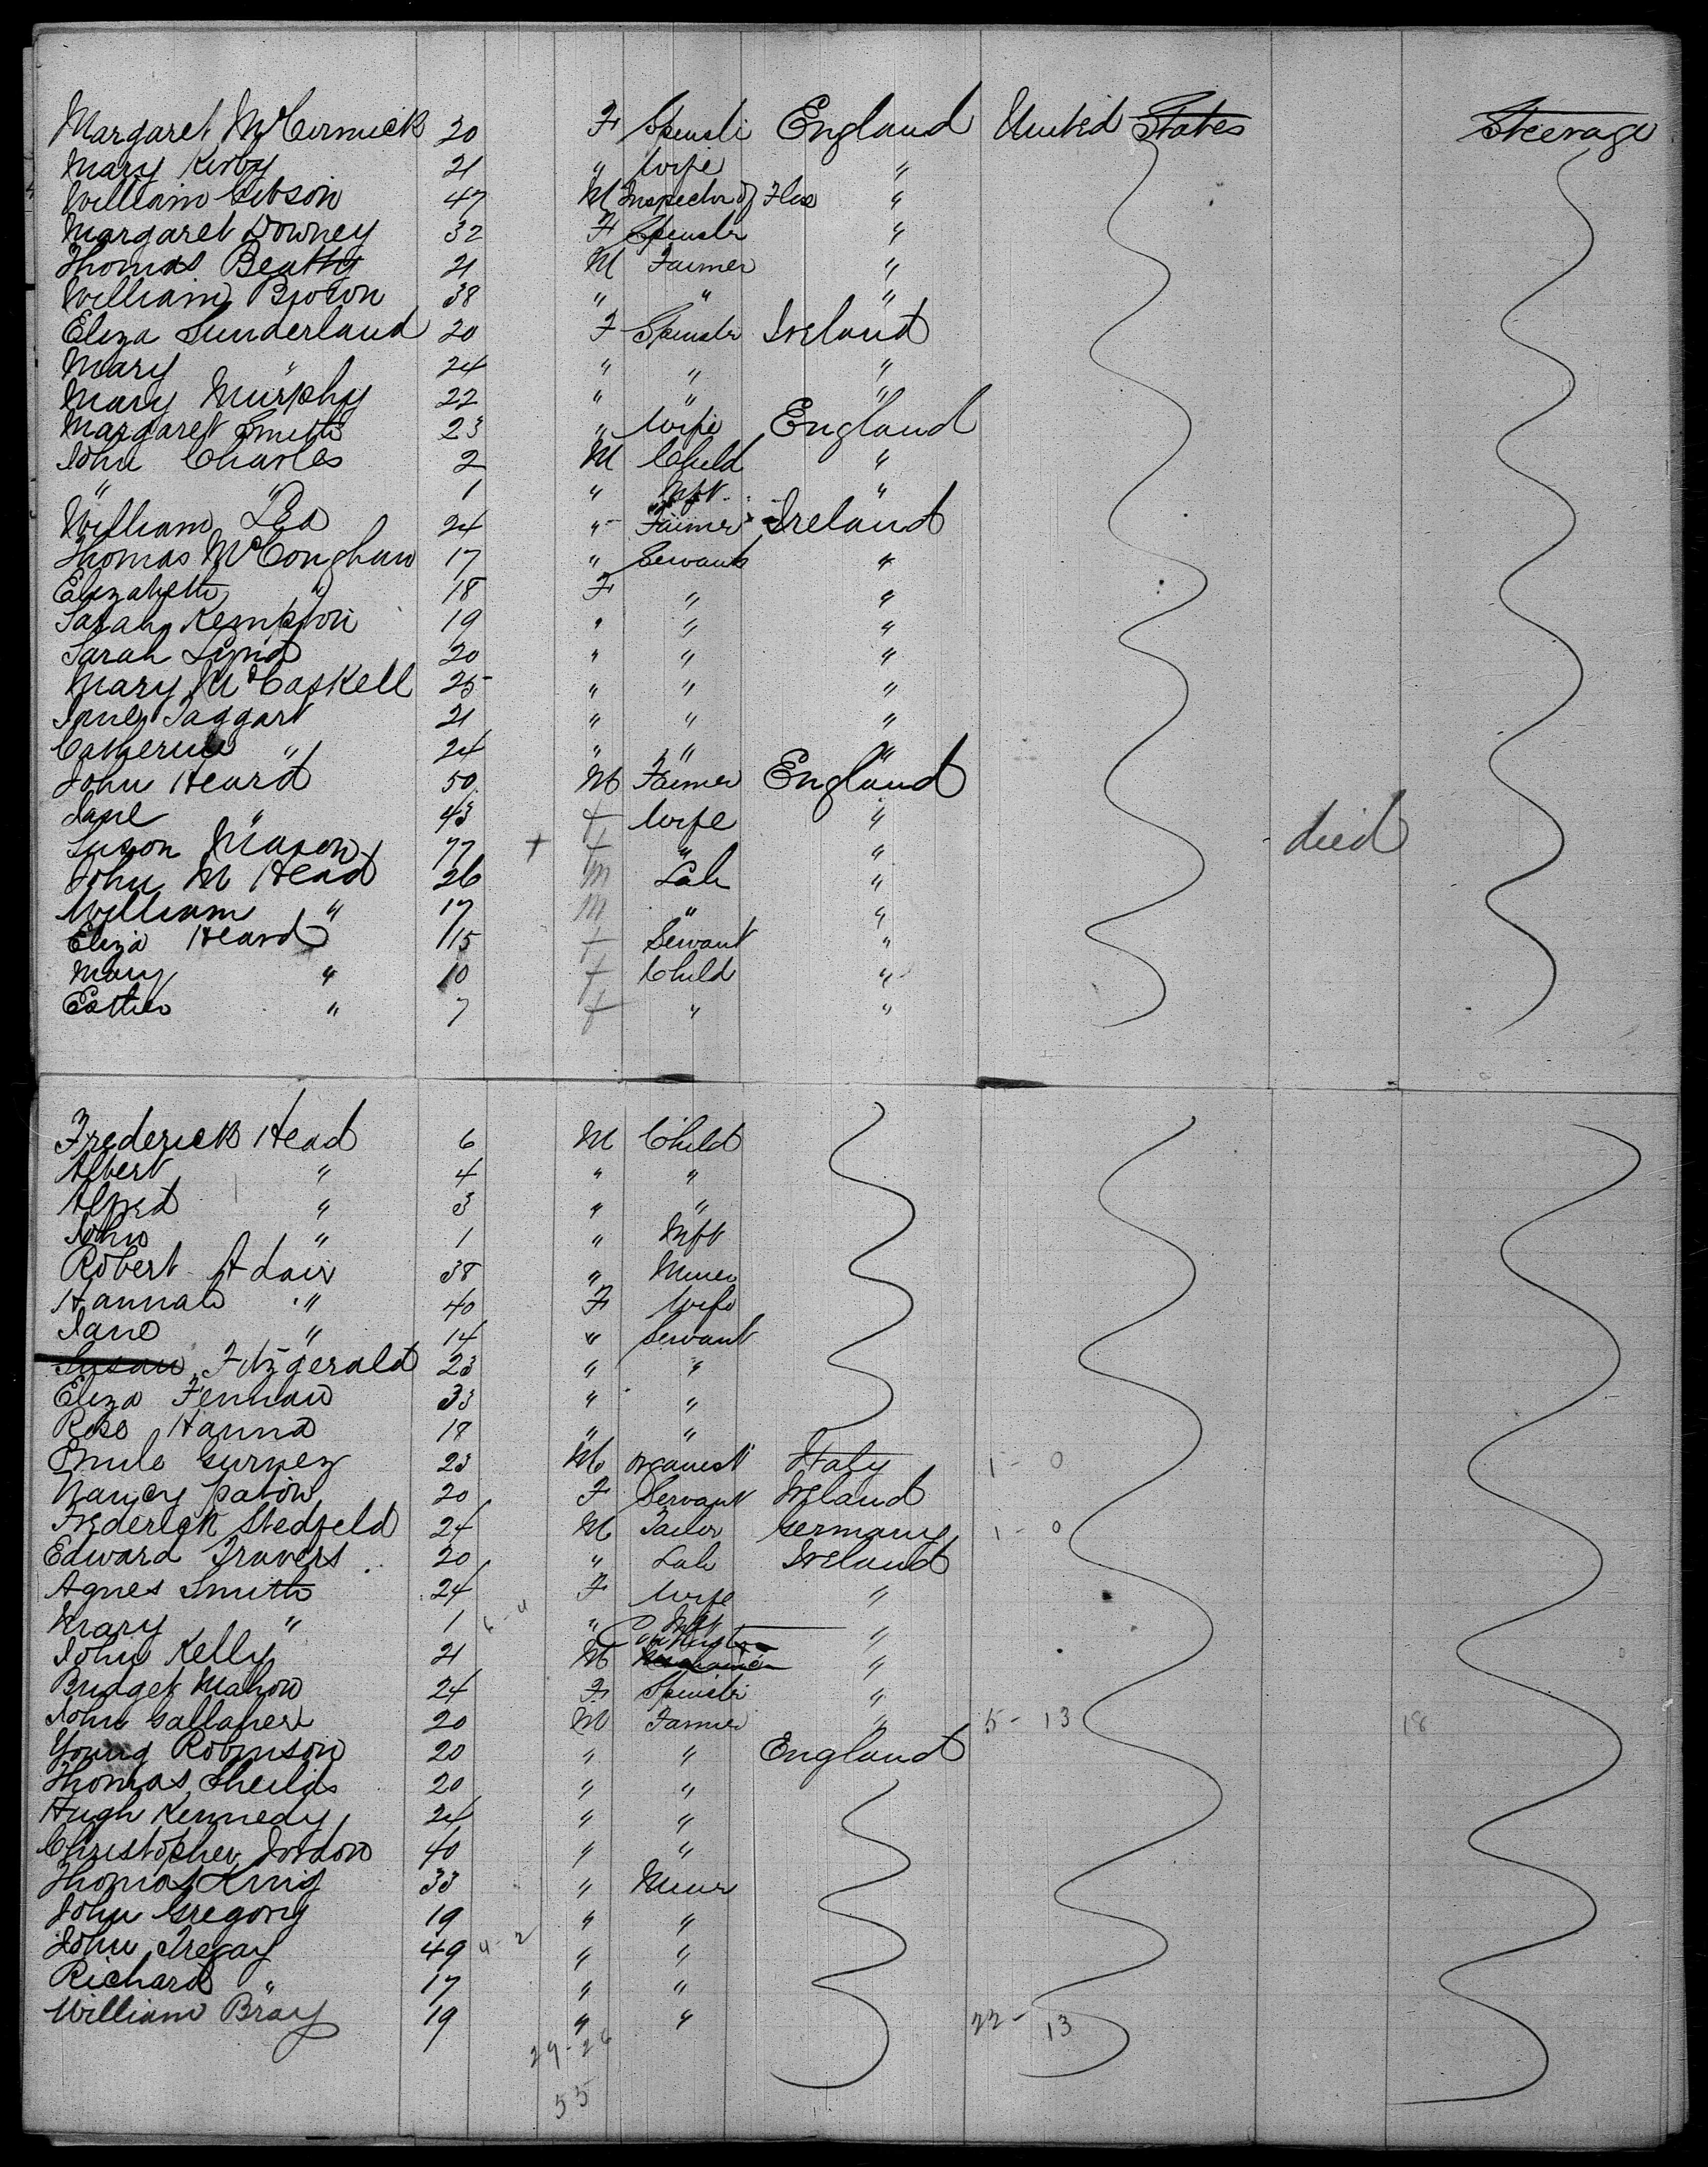 Margaret McCormick 20 F Spinstr England United States Steerage
Mary Kirby 21 " Wife "
William Gibson 47 M Inspector of Flax "
Margaret Downey 32 F Spinstr "
Thomas Beatty 21 M Farmer "
William Brown 38 " " "
Eliza Sunderland 20 F Spinstr Ireland
Mary " 24 " " "
Mary Murphy 22 " " "
Margaret Smith 23 " Wife England
John Charles 2 M Child "
" " 1 " Inft "
William Lea 24 " Farmer Ireland
Thomas McConghan 17 " Servant "
Elizabeth " 18 F " "
Sarah Kempton 19 " " "
Sarah Lynd 20 " " "
Mary McCaskell 25 " " "
Jane Taggart 21 " " "
Catherine " 24 " " "
John Heard 50 M Farmer England
Jane " 43 f Wife "
Susan Mason 77 + f " " died
John M Head 26 m Lab "
William " 17 m " "
Eliza Heard 15 f Servant "
Mary " 10 f Child "
Esther " 7 f " "
Frederick Head 6 M Child
Albert " 4 " "
Alfred " 3 " "
John " 1 " Inft
Robert Adair 38 " Miner
Hannah " 40 F Wife
Jane " 14 " Servant
Susan Fitzgerald 23 " "
Eliza Fennan 33 " "
Rose Hanna 18 " "
Emile Gurney 23 M Organist Italy 1 - 0
Nancy Paton 20 F Servant Ireland
Frederick Stedfeld 24 M Tailor Germany 1 - 0
Edward Travers 20 " Lab Ireland
Agnes Smith 24 F Wife "
Mary " 1 " Inft "
John Kelly 21 M "
Bridget Mahon 24 F Spinstr "
John Gallaher 20 M Farmer " 5 - 13 18
Young Robinson 20 " " England
Thomas Sheilds 20 " "
Hugh Kennedy 24 " "
Christopher Jordon 40 " "
Thomas King 33 " Miner
John Gregory 19 " "
John Tregay 49 4 - 2 " "
Richard " 17 " "
William Bray 19 " " 22 - 13
29 - 26
55